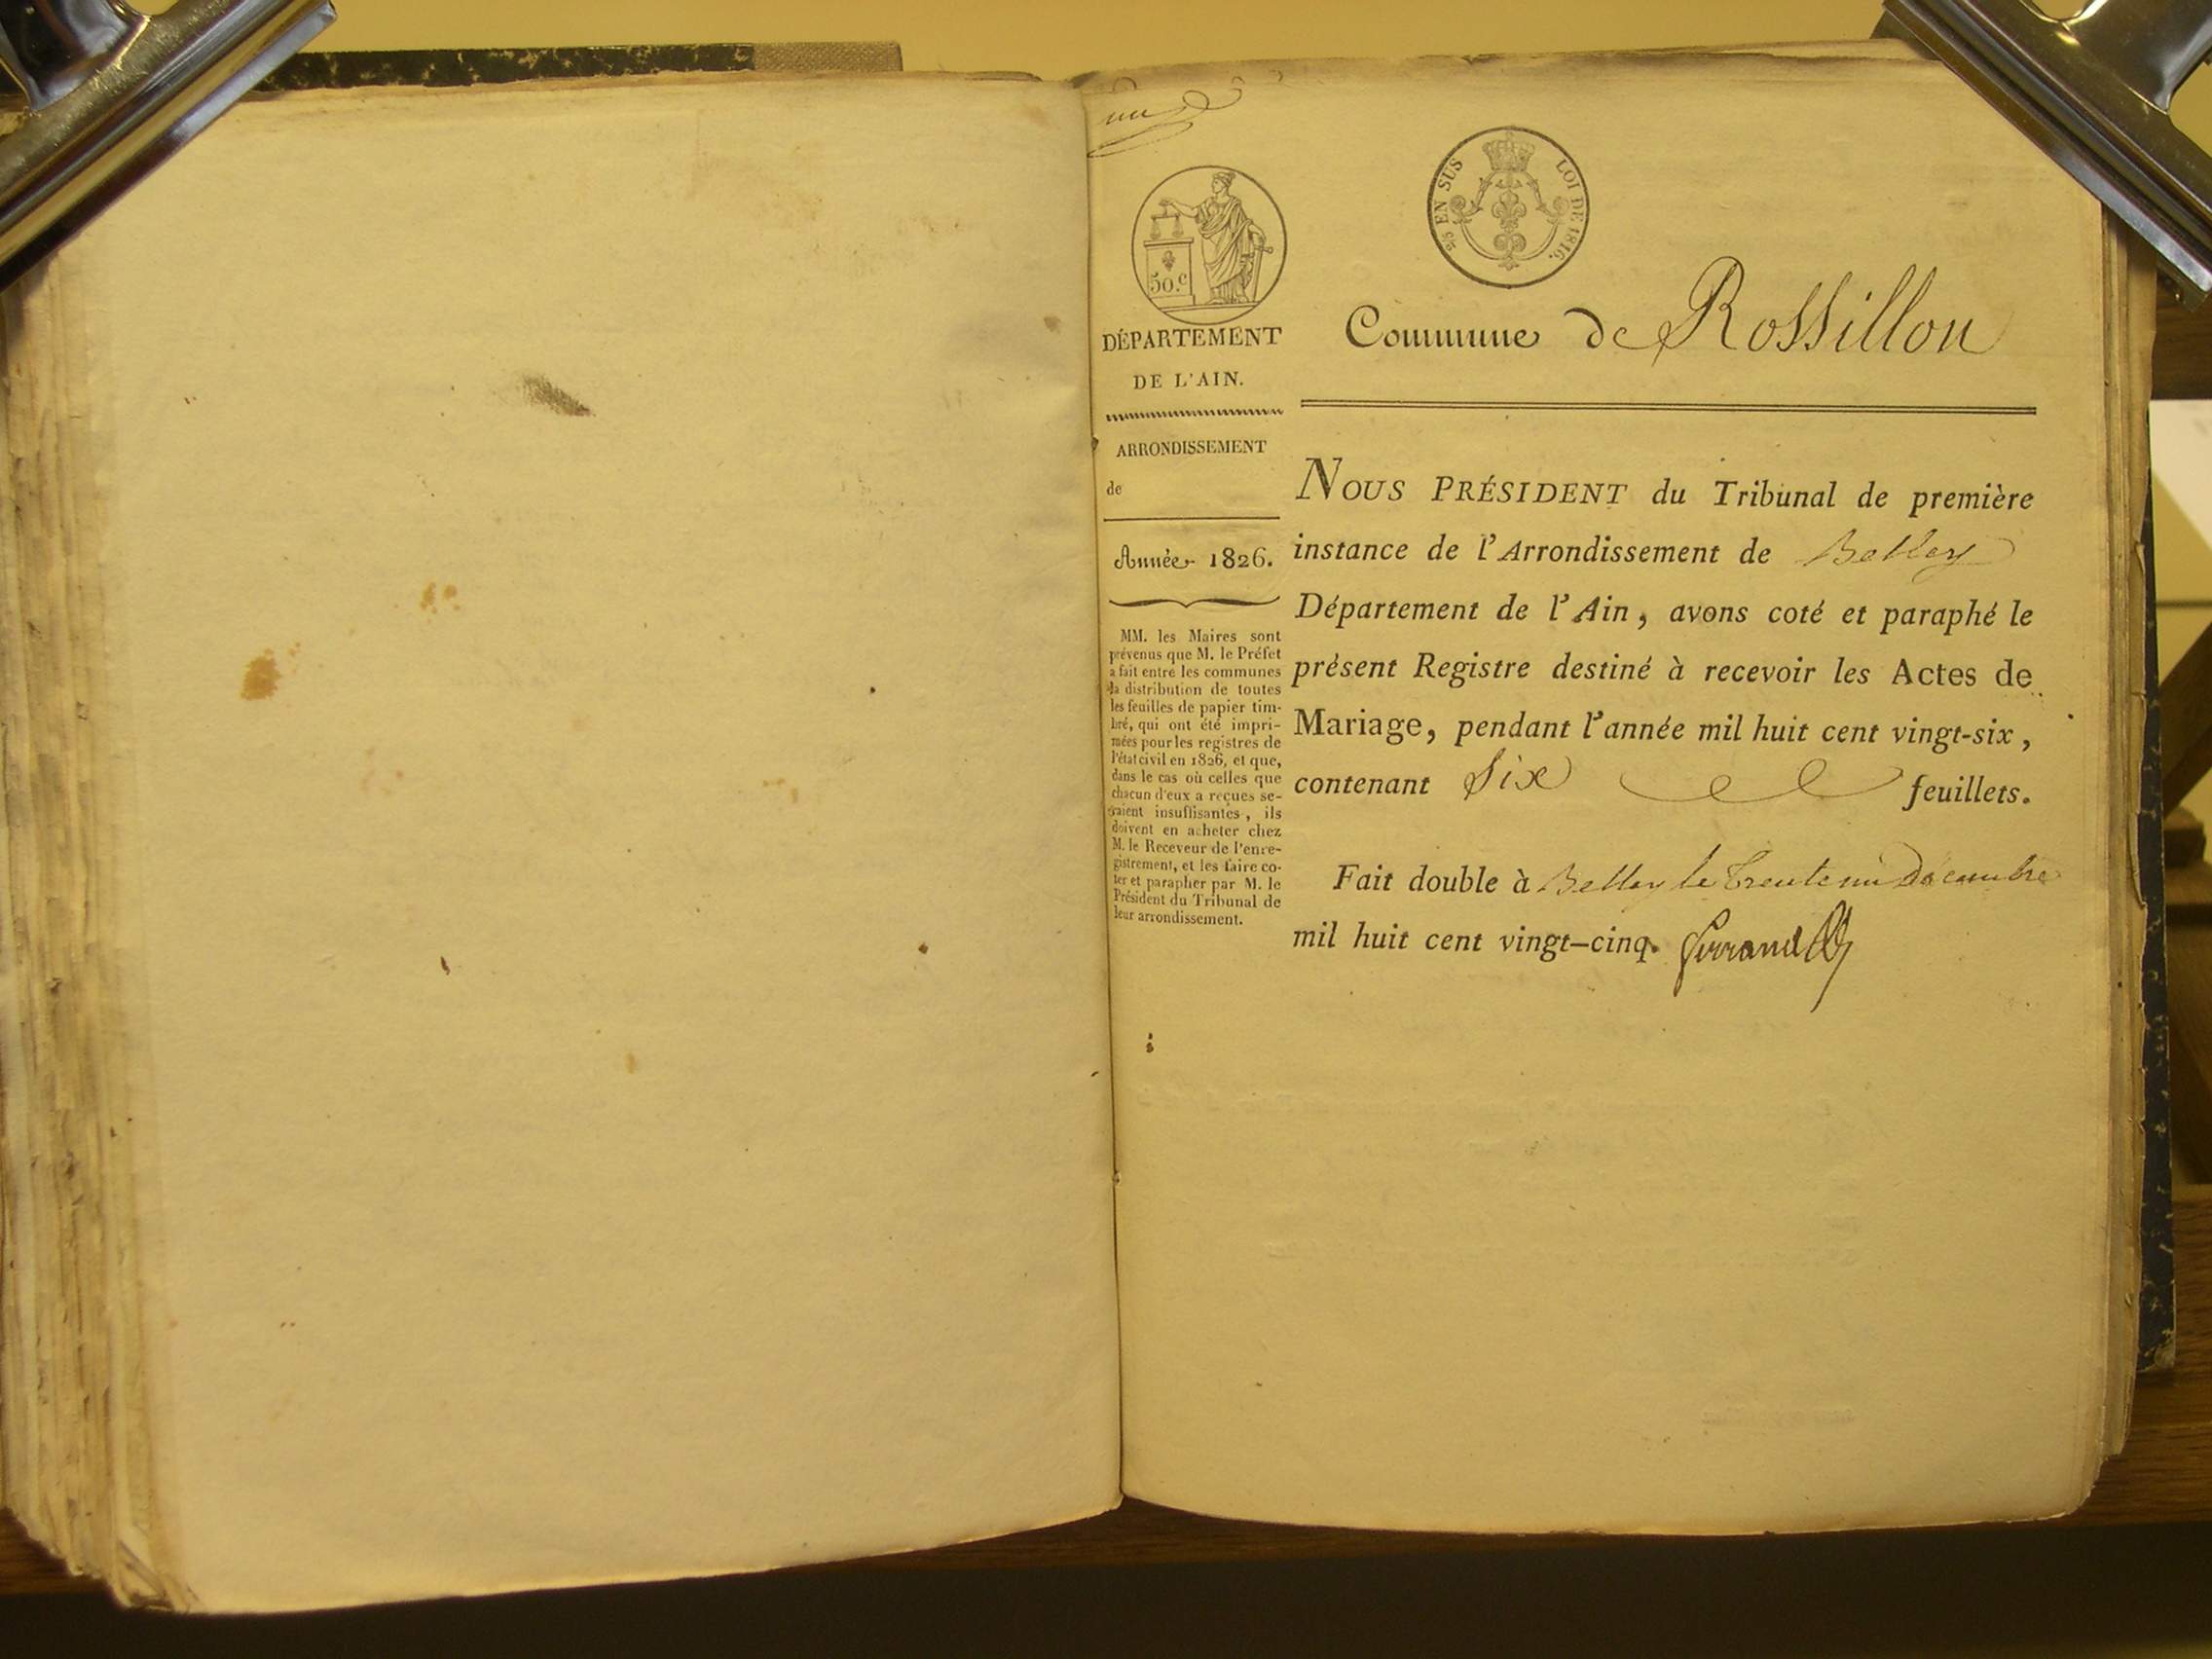 un
50.c
EN SUS LOI DE 1816.
DÉPARTEMENT
DE L'AIN.
ARRONDISSEMENT
de
Année 1826.
MM. les Maires sont
prévenus que M. le Préfet
a fait entre les communes
la distribution de toutes
les feuilles de papier tim-
bré, qui ont été impri-
mées pour les registres de
l'état civil en 1826, et que,
dans le cas où celles que
chacun d'eux a reçues se-
raient insuffisantes, ils
doivent en acheter chez
M. le Receveur de l'enre-
gistrement, et les faire co-
ter et parapher par M. le
Président du Tribunal de
leur arrondissement.
Commune de Rossillon
NOUS PRÉSIDENT du Tribunal de première
instance de l'Arrondissement de Belley
Département de l'Ain, avons coté et paraphé le
présent Registre destiné à recevoir les Actes de
Mariage, pendant l'année mil huit cent vingt-six,
contenant Six feuillets.
Fait double à Belley le trente un Décembre
mil huit cent vingt-cinq.